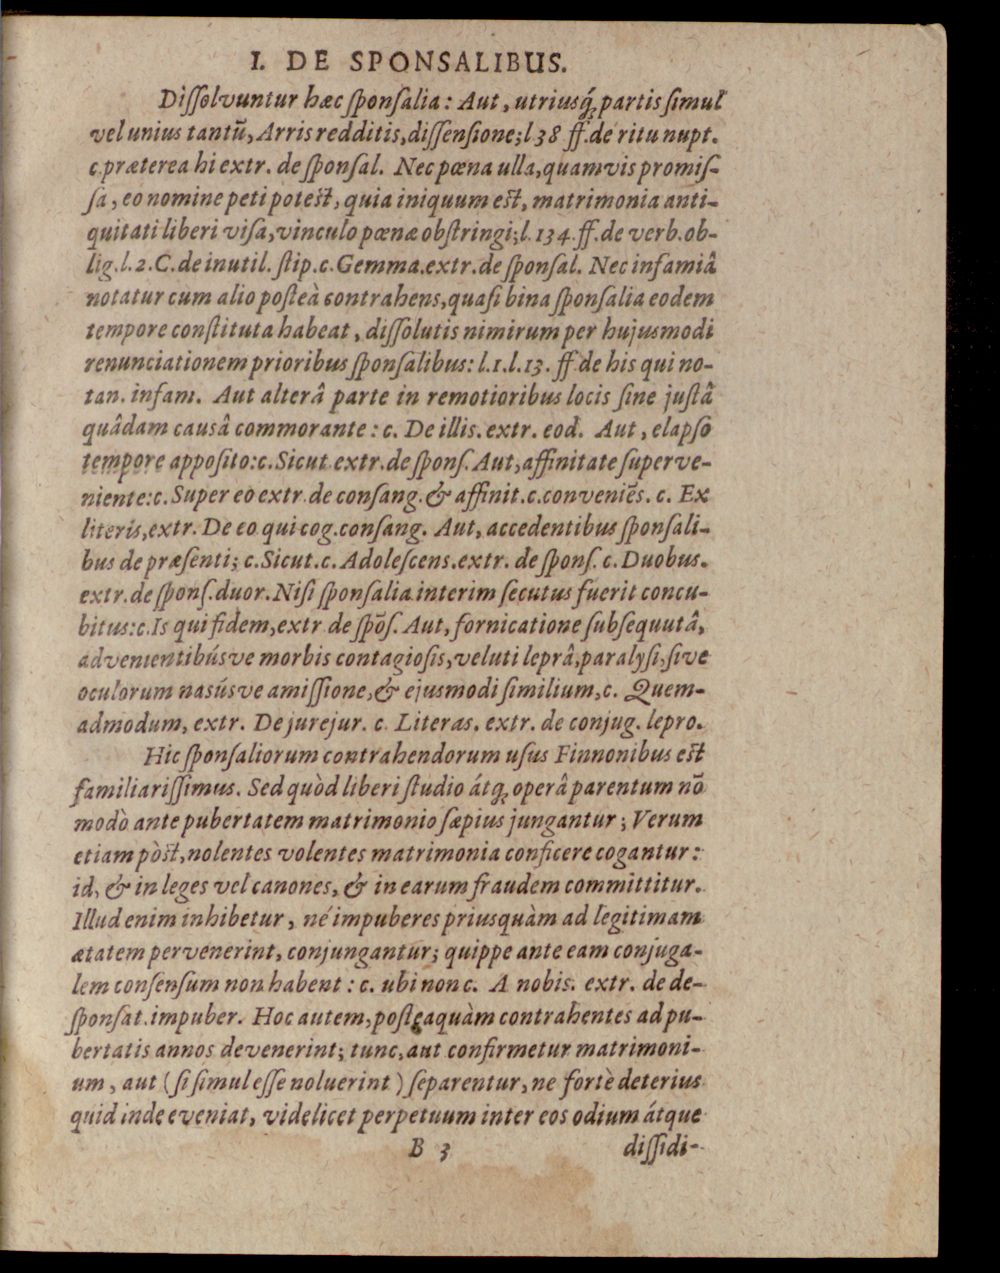 I. DE SPONSALIBUS.
Diſſolvuntur hæc ſponſalia: Aut, utriusq́; partis ſimul
vel unius tantũ, Arris redditis, diſſenſione; l 38 ff. de ritu nupt.
c. præterea hi extr. de ſponſal. Nec pœna ulla, quamvis promiſ-
ſa, eo nomine peti poteſt, quia iniquum eſt, matrimonia anti-
quitati liberi viſa, vinculo pœnæ obſtringi; l. 134. ff. de verb. ob-
lig. l. 2. C. de inutil. ſtip. c. Gemma. extr. de ſponſal. Nec infamiâ
notatur cum alio poſteà contrahens, quaſi bina ſponſalia eodem
tempore conſtituta habeat, diſſolutis nimirum per hujusmodi
renunciationem prioribus ſponſalibus: l. 1. l. 13. ff. de his qui no-
tan. infam. Aut alterâ parte in remotioribus locis ſine juſtâ
quâdam causâ commorante: c. De illis. extr. eod. Aut, elapſo
tempore appoſito: c. Sicut extr. de ſponſ. Aut, affinitate ſuperve-
niente: c. Super eo extr. de conſang. & affinit. c. conveniẽs. c. Ex
literis, extr. De eo qui cog. conſang. Aut, accedentibus ſponſali-
bus de præſenti; c. Sicut. c. Adoleſcens. extr. de ſponſ. c. Duobus.
extr. de ſponſ. duor. Niſi ſponſalia interim ſecutus fuerit concu-
bitus: c. Is qui fidem, extr. de ſpõſ. Aut, fornicatione ſubſequutâ,
advenientibúsve morbis contagioſis, veluti leprâ, paralyſi, ſive
oculorum nasúsve amiſſione, & ejusmodi ſimilium, c. Quem-
admodum, extr. De jurejur. c. Literas. extr. de conjug. lepro.
Hic ſponſaliorum contrahendorum uſus Finnonibus eſt
familiariſſimus. Sed quòd liberi ſtudio átq́; operâ parentum nõ
modò ante pubertatem matrimonio ſæpius jungantur; Verum
etiam pòſt, nolentes volentes matrimonia conficere cogantur:
id, & in leges vel canones, & in earum fraudem committitur.
Illud enim inhibetur, né impuberes priusquàm ad legitimam
ætatem pervenerint, conjungantur; quippe ante eam conjuga-
lem conſenſum non habent: c. ubi non c. A nobis. extr. de de-
ſponſat. impuber. Hoc autem, poſteaquàm contrahentes ad pu-
bertatis annos devenerint; tunc, aut confirmetur matrimoni-
um, aut (ſi ſimul eſſe noluerint) ſeparentur, ne fortè deterius
quid inde eveniat, videlicet perpetuum inter eos odium átque
B 3 diſſidi-